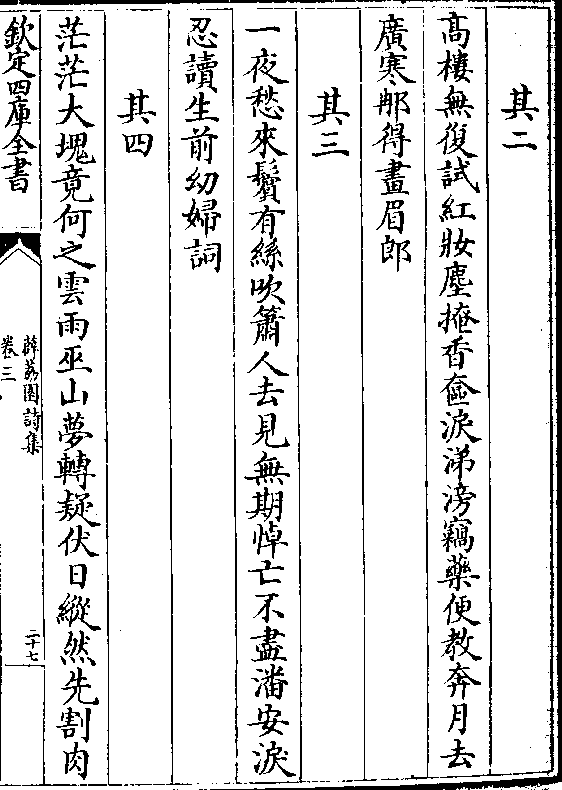 其二
高樓無復試紅妝塵掩香奩淚沸滂竊藥便教奔月去
廣寒那得畫眉郎
其三
一夜愁來鬢有絲吹簫人去見無期悼亡不盡潘安淚
忍讀生前幼婦詞
其四
茫茫大塊竟何之雲雨巫山夢轉疑伏日縱然先割肉
欽定四庫全書
薜荔園詩集
卷三
二十七